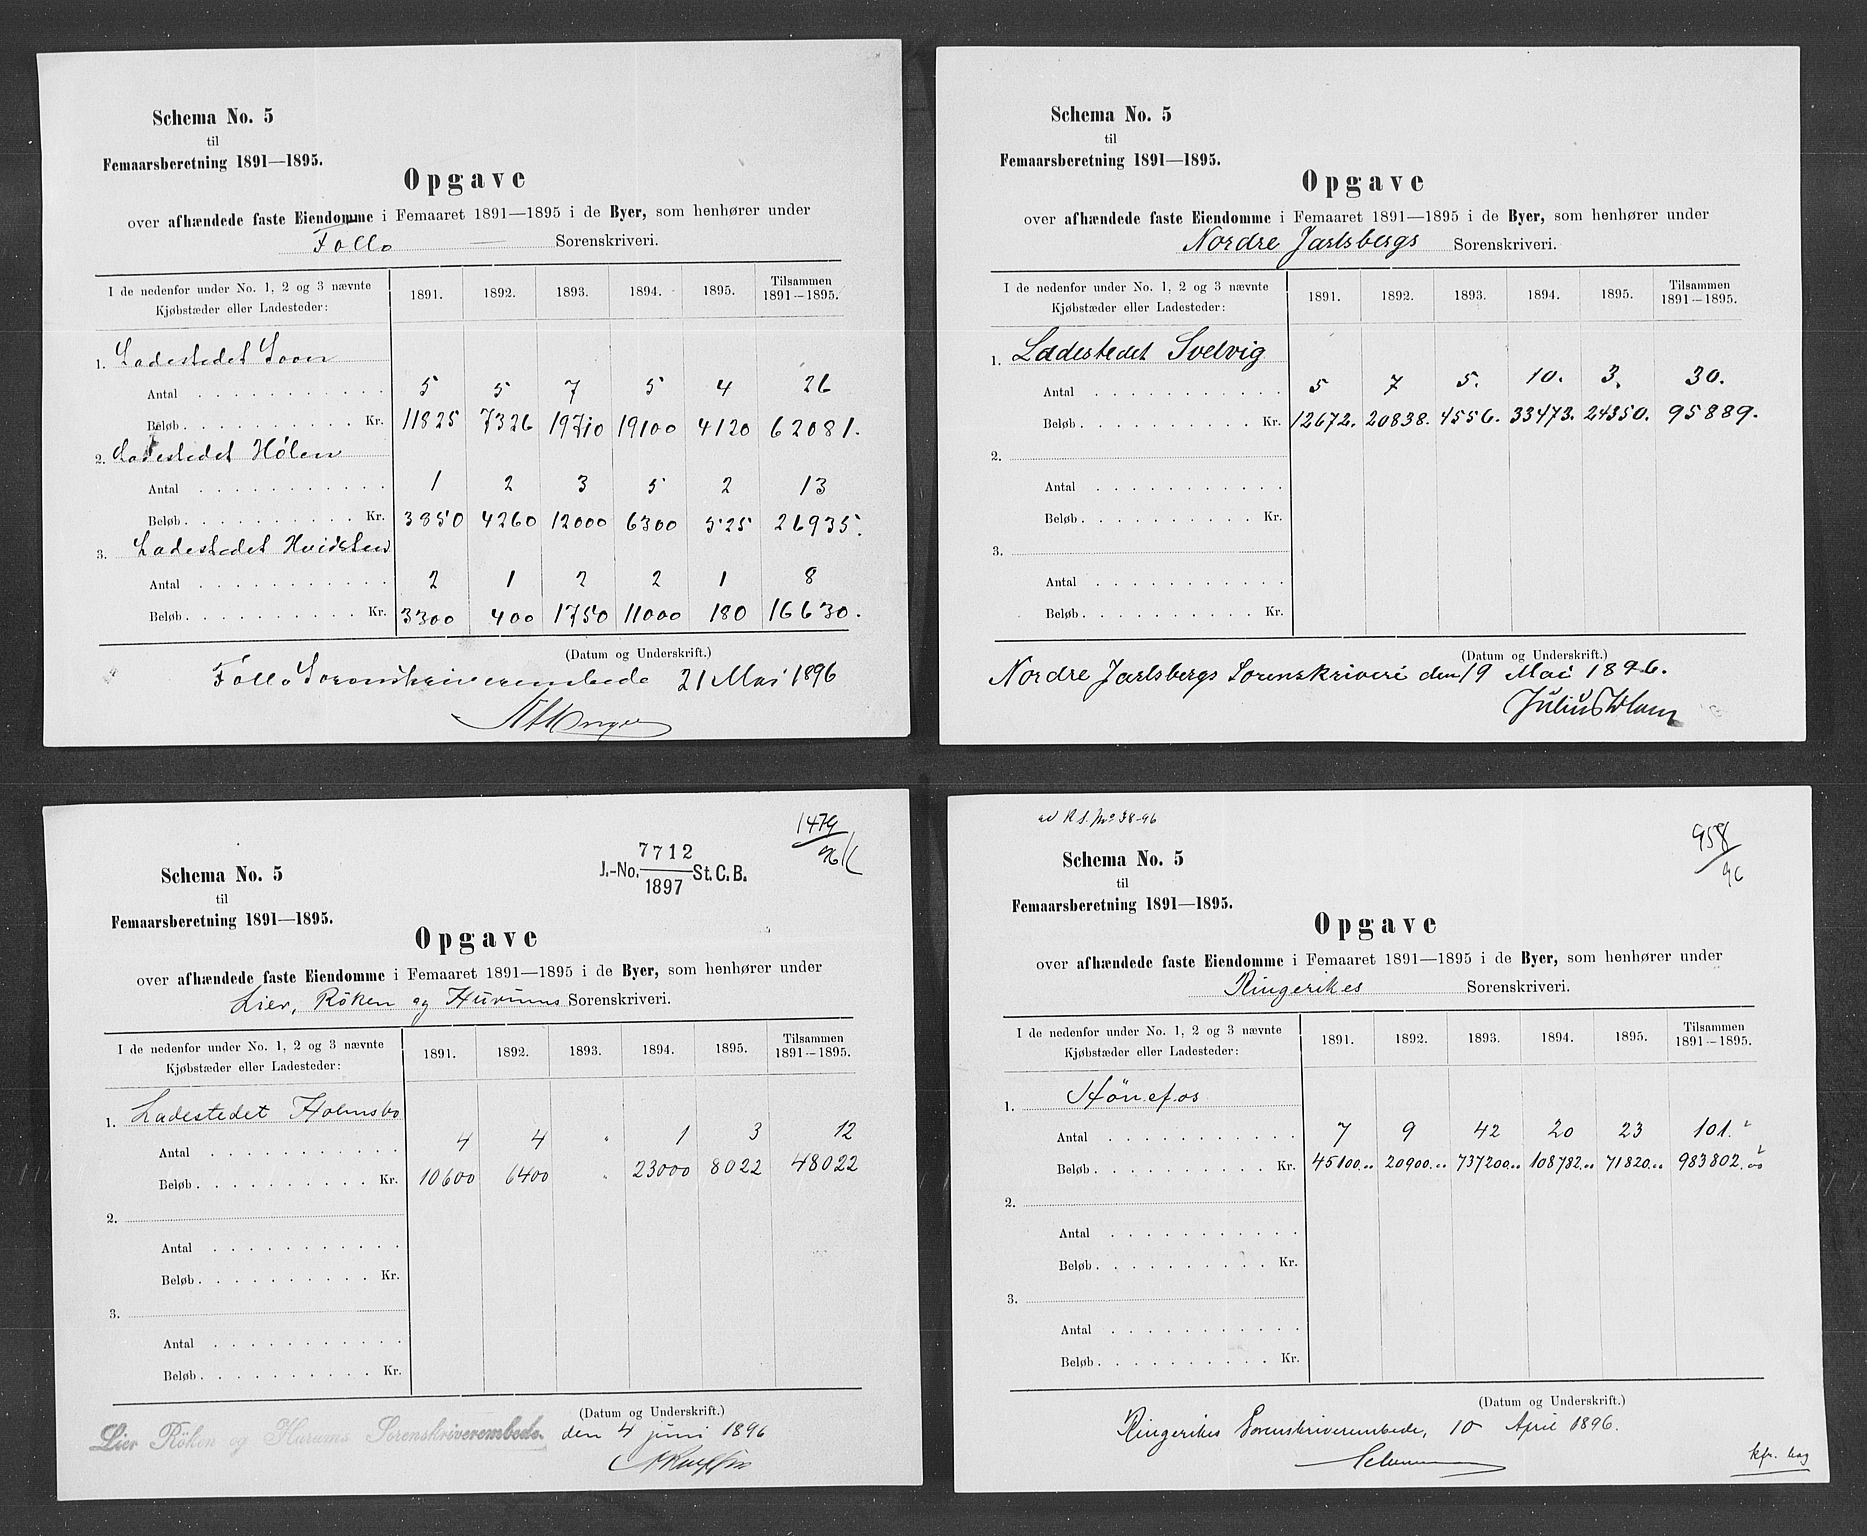 Schema No. 5
til
Femaarsberetning 1891—1895.
Opgave
over afhændede faste Eiendomme i Femaaret 1891—1895 i de Byer, som henhører under
Follo — Sorenskriveri.
I de nedenfor under No. 1, 2 og 3 nævnte Kjøbstæder eller Ladesteder: 1891. 1892. 1893. 1894. 1895. Tilsammen 1891—1895.
1. Ladestedet Soon
Antal 5 5 7 5 4 26
Beløb Kr. 11825 7326 19710 19100 4120 62081.
2. Ladestedet Hölen
Antal 1 2 3 5 2 13
Beløb Kr. 3850 4260 12000 6300 525 26935.
3. Ladestedet Hvidsten
Antal 2 1 2 2 1 8
Beløb Kr. 3300 400 1750 11000 180 16630.
(Datum og Underskrift.)
Follo Sorenskriverembede 21 Mai 1896
Schema No. 5
til
Femaarsberetning 1891—1895.
Opgave
over afhændede faste Eiendomme i Femaaret 1891—1895 i de Byer, som henhører under
Nordre Jarlsbergs Sorenskriveri.
I de nedenfor under No. 1, 2 og 3 nævnte Kjøbstæder eller Ladesteder: 1891. 1892. 1893. 1894. 1895. Tilsammen 1891—1895.
1. Ladestedet Svelvig
Antal 5 7 5. 10. 3. 30.
Beløb Kr. 12672. 20838. 4556. 33473. 24350. 95889.
2.
Antal
Beløb Kr.
3.
Antal
Beløb Kr.
(Datum og Underskrift.)
Nordre Jarlsbergs Sorenskriveri den 19 Mai 1896.
Julius
1479
96
J.-No. 7712 St. C. B.
1897
Schema No. 5
til
Femaarsberetning 1891—1895.
Opgave
over afhændede faste Eiendomme i Femaaret 1891—1895 i de Byer, som henhører under
Lier, Röken og Hurums Sorenskriveri.
I de nedenfor under No. 1, 2 og 3 nævnte Kjøbstæder eller Ladesteder: 1891. 1892. 1893. 1894. 1895. Tilsammen 1891—1895.
1. Ladestedet Holmsbo
Antal 4 4 " 1 3 12
Beløb Kr. 10600 6400 " 23000 8022 48022
2.
Antal
Beløb Kr.
3.
Antal
Beløb Kr.
(Datum og Underskrift.)
Lier Röken og Hurums Sorenskriverembede. den 4 juni 1896
ad R.S. No 38-96
958
96
Schema No. 5
til
Femaarsberetning 1891—1895.
Opgave
over afhændede faste Eiendomme i Femaaret 1891—1895 i de Byer, som henhører under
Ringerikes Sorenskriveri.
I de nedenfor under No. 1, 2 og 3 nævnte Kjøbstæder eller Ladesteder: 1891. 1892. 1893. 1894. 1895. Tilsammen 1891—1895.
1. Hönefos
Antal 7 9 42 20 23 101.
Beløb Kr. 45100.00 20900.00 737200.00 108782.00 71820.00 983802.00
2.
Antal
Beløb Kr.
3.
Antal
Beløb Kr.
(Datum og Underskrift.)
Ringerikes Sorenskriverembede, 10 April 1896.
kfr. bag